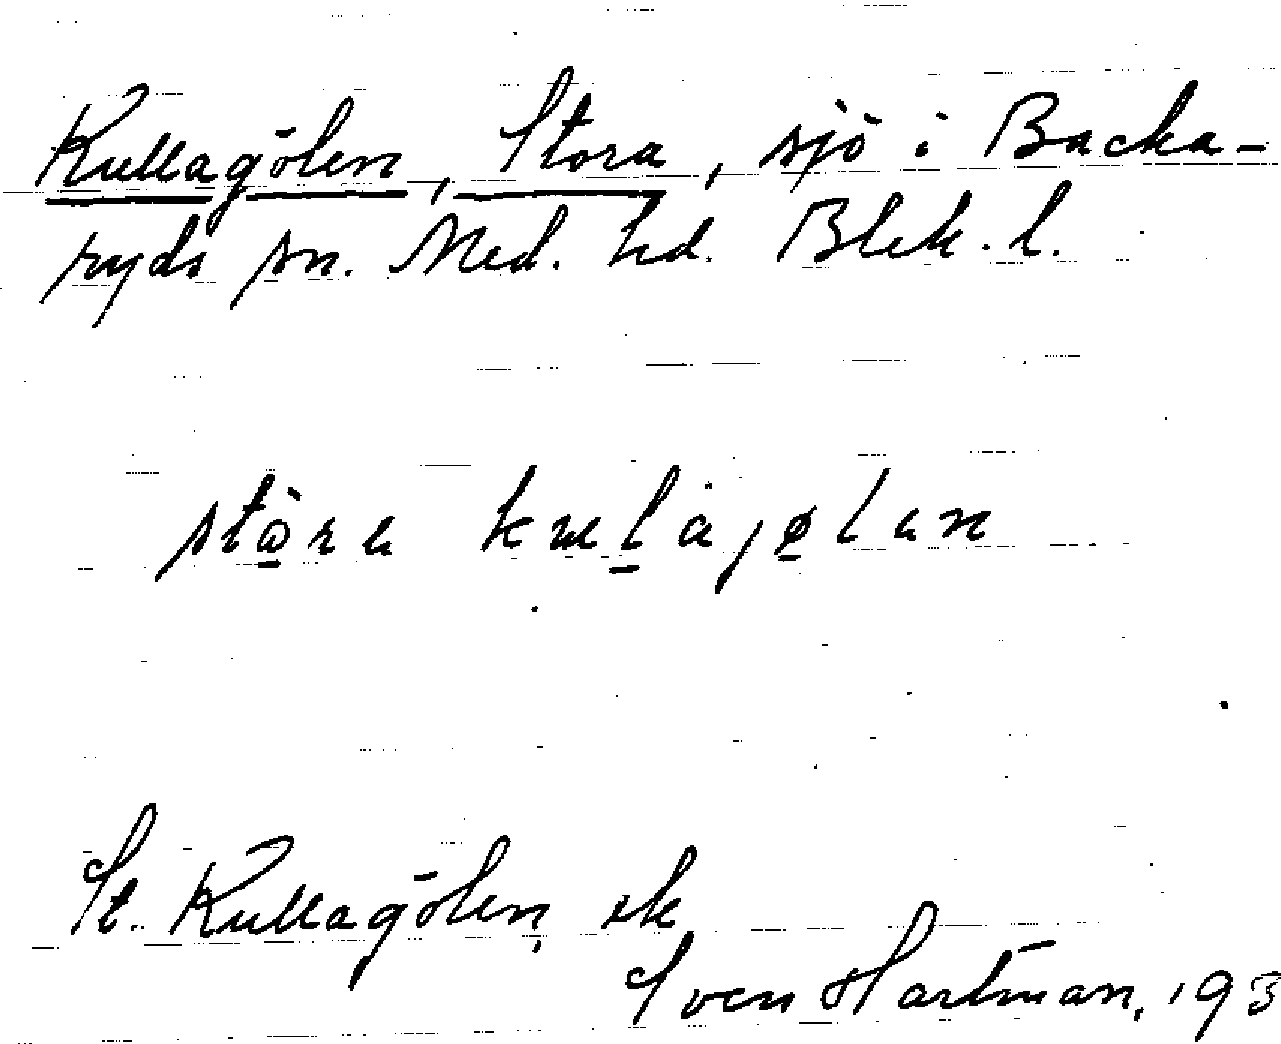 Kullagölen, Stora, sjö i Backa-
ryds sn. Med. hd. Blek. l.
St. Kullagölen, ek
Sven Hartman, 193